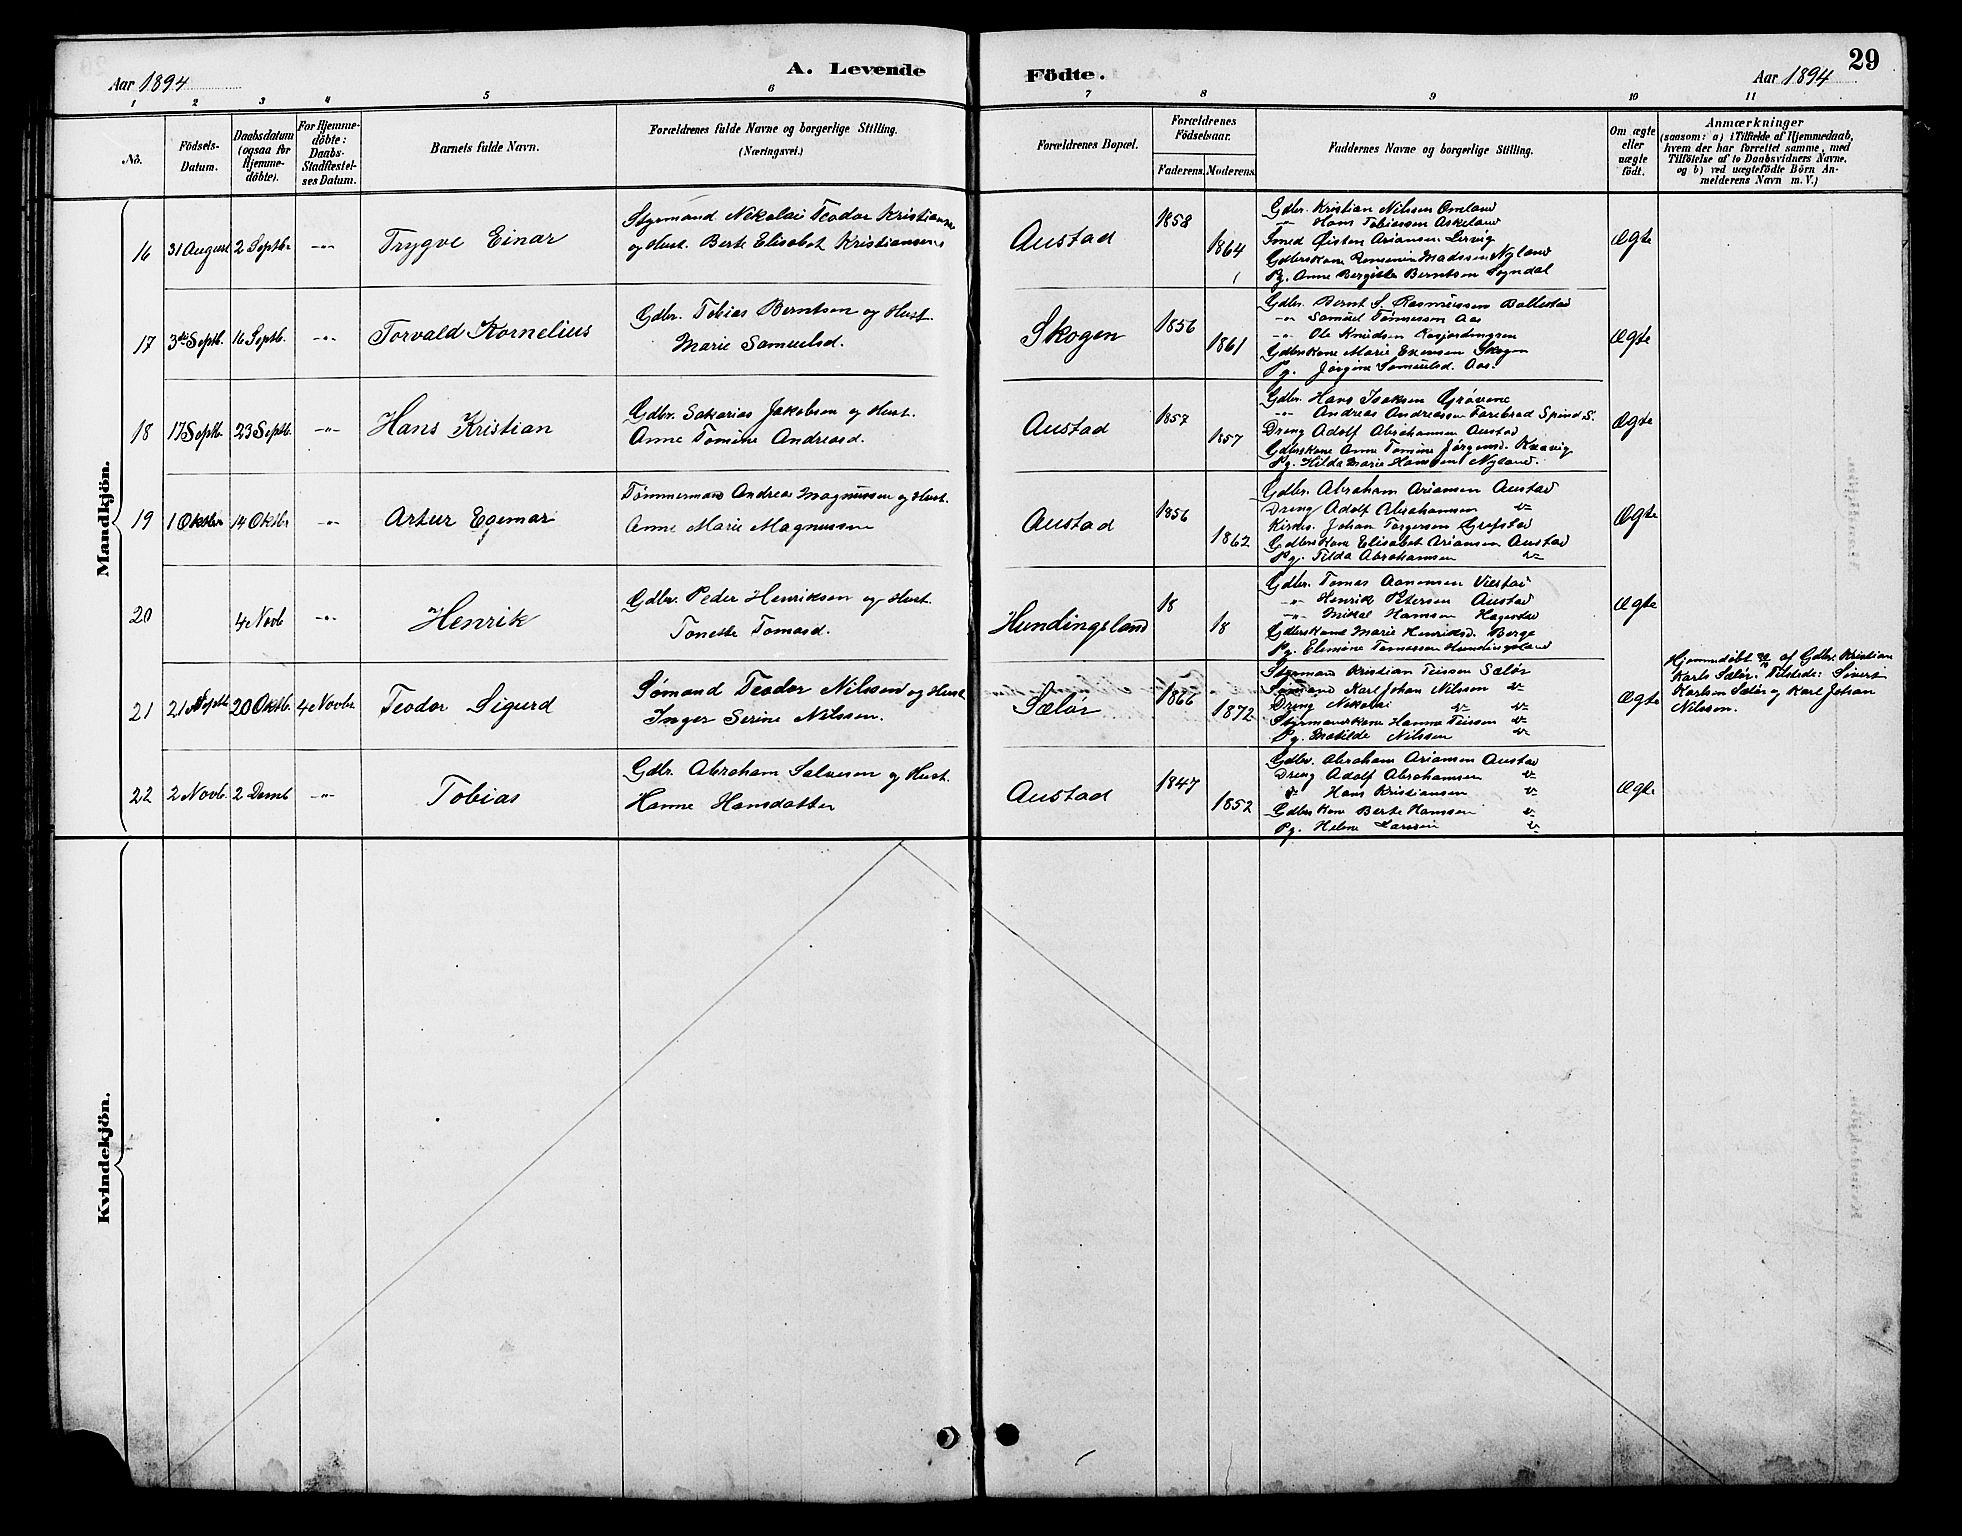 29
A. Levende Födte.
Aar 1894
Aar 1894
1 2 3 4 5 6 7 8 9 10 11
No.
Födsels-Datum.
Daabsdatum (ogsaa for Hjemme-döbte).
For Hjemme-döbte: Daabs-Stadfæstel-ses Datum.
Barnets fulde Navn.
Forældrenes fulde Navne og borgerlige Stilling.
(Næringsvei.)
Forældrenes Bopæl.
Forældrenes Födselsaar.
Faderens. Moderens.
Faddernes Navne og borgerlige Stilling.
Om ægte eller uægte födt.
Anmærkninger
(saasom: a) i Tilfælde af Hjemmedaab,
hvem der har forrettet samme, med
Tilföielse af to Daabsvidners Navne,
og b) ved uægtefödte Börn An-
melderens Navn m. V.)
Mandkjön.
16 31 August 2 Septbr -"- Trygve Einar
Styrmand Nikolai Teodor Kristiansen
og Hust. Berte Elisabet Kristiansen
Austad 1858 1864
Gdbr. Kristian Nilssen Omland
-"- Hans Tobiassen Askeland
Smed Øisten Ariansen Lervig
Gdberskone Madssen Nyland
Pg. Anne Bergitte Berntsen Sogndal
Ægte
17 3die Septb. 16 Septb. -"- Torvald Kornelius
Gdbr. Tobias Berntsen og Hust.
Marie Samuelsd.
Skogen 1856 1861
Gdbr. Bernt S. Rasmussen Ballestad
-"- Samuel Tønnessen Aas
-"- Ole Knudsen
Gdberskone Marie Skogen
Pg. Jørgine Samuelsd. Aas.
Ægte
18 17 Septb. 23 Septb. -"- Hans Kristian
Gdbr. Sakarias Jakobsen og Hust.
Anne Tomine Andreasd.
Austad 1857 1857
Gdbr. Hans Isaksen Grøvene
-"- Andreas Andreassen Farebrad Spind S.
Dreng Adolf Abrahamsen Austad
Gdberskone Anne Tomine Jørgensd. Kaavig
Pg. Hilda Marie Hanssen Nyland.
Ægte
19 1 Oktbr 14 Oktbr -"- Artur Egemar
Tømmermand Andreas Magnussen og Hust.
Anne Marie Magnussen
Austad 1856 1862
Gdbr. Abraham Ariansen Austad
Dreng Adolf Abrahamsen "-
Johan Torgersen Grafstad
Gdberskone Elisabet Ariansen Austad
Pg. Tilda Abrahamsen "-
Ægte
20 4 Novb -"- Henrik
Gdbr. Peder Henriksen og Hust.
Tonette Tomasd.
Hundingsland 18 18
Gdbr. Tomas Aanensen Viestad
-"- Henrik Petersen Austad
-"- Mikal Hansen Hagestad
Gdberskone Marie Henriksd. Berge
Pg. Elimine Tomassen Hundingsland
Ægte
21 21 Septb. 20 Oktbr. 4 Novbr. Teodor Sigurd
Sømand Teodor Nilssen og Hust
Inger Serine Nilssen.
Sælør 1866 1872
Styrmand Kristian Teissen Sælør
Sømand Karl Johan Nilssen "-
Dreng Nikolai "- "-
Styrmandskone Hanna Teissen "-
Pg. Matilde Nilssen "-
Ægte
Hjemmedøbt 20/10 af Gdbr. Kristian
Karls. Sælør. Tilstede: Sivert
Karlsen Sælør og Karl Johan
Nilssen.
22 2 Novb. 2 Decmb -"- Tobias
Gdbr. Abraham Salvesen og Hust.
Hanne Hansdatter
Austad 1847 1852
Gdbr. Abraham Ariansen Austad
Dreng Adolf Abrahamsen "-
"- Hans Kristiansen "-
Gdbers Kone Berte Hanssen "-
Pg. Helene Larssen "-
Ægte
Kvindekjön.